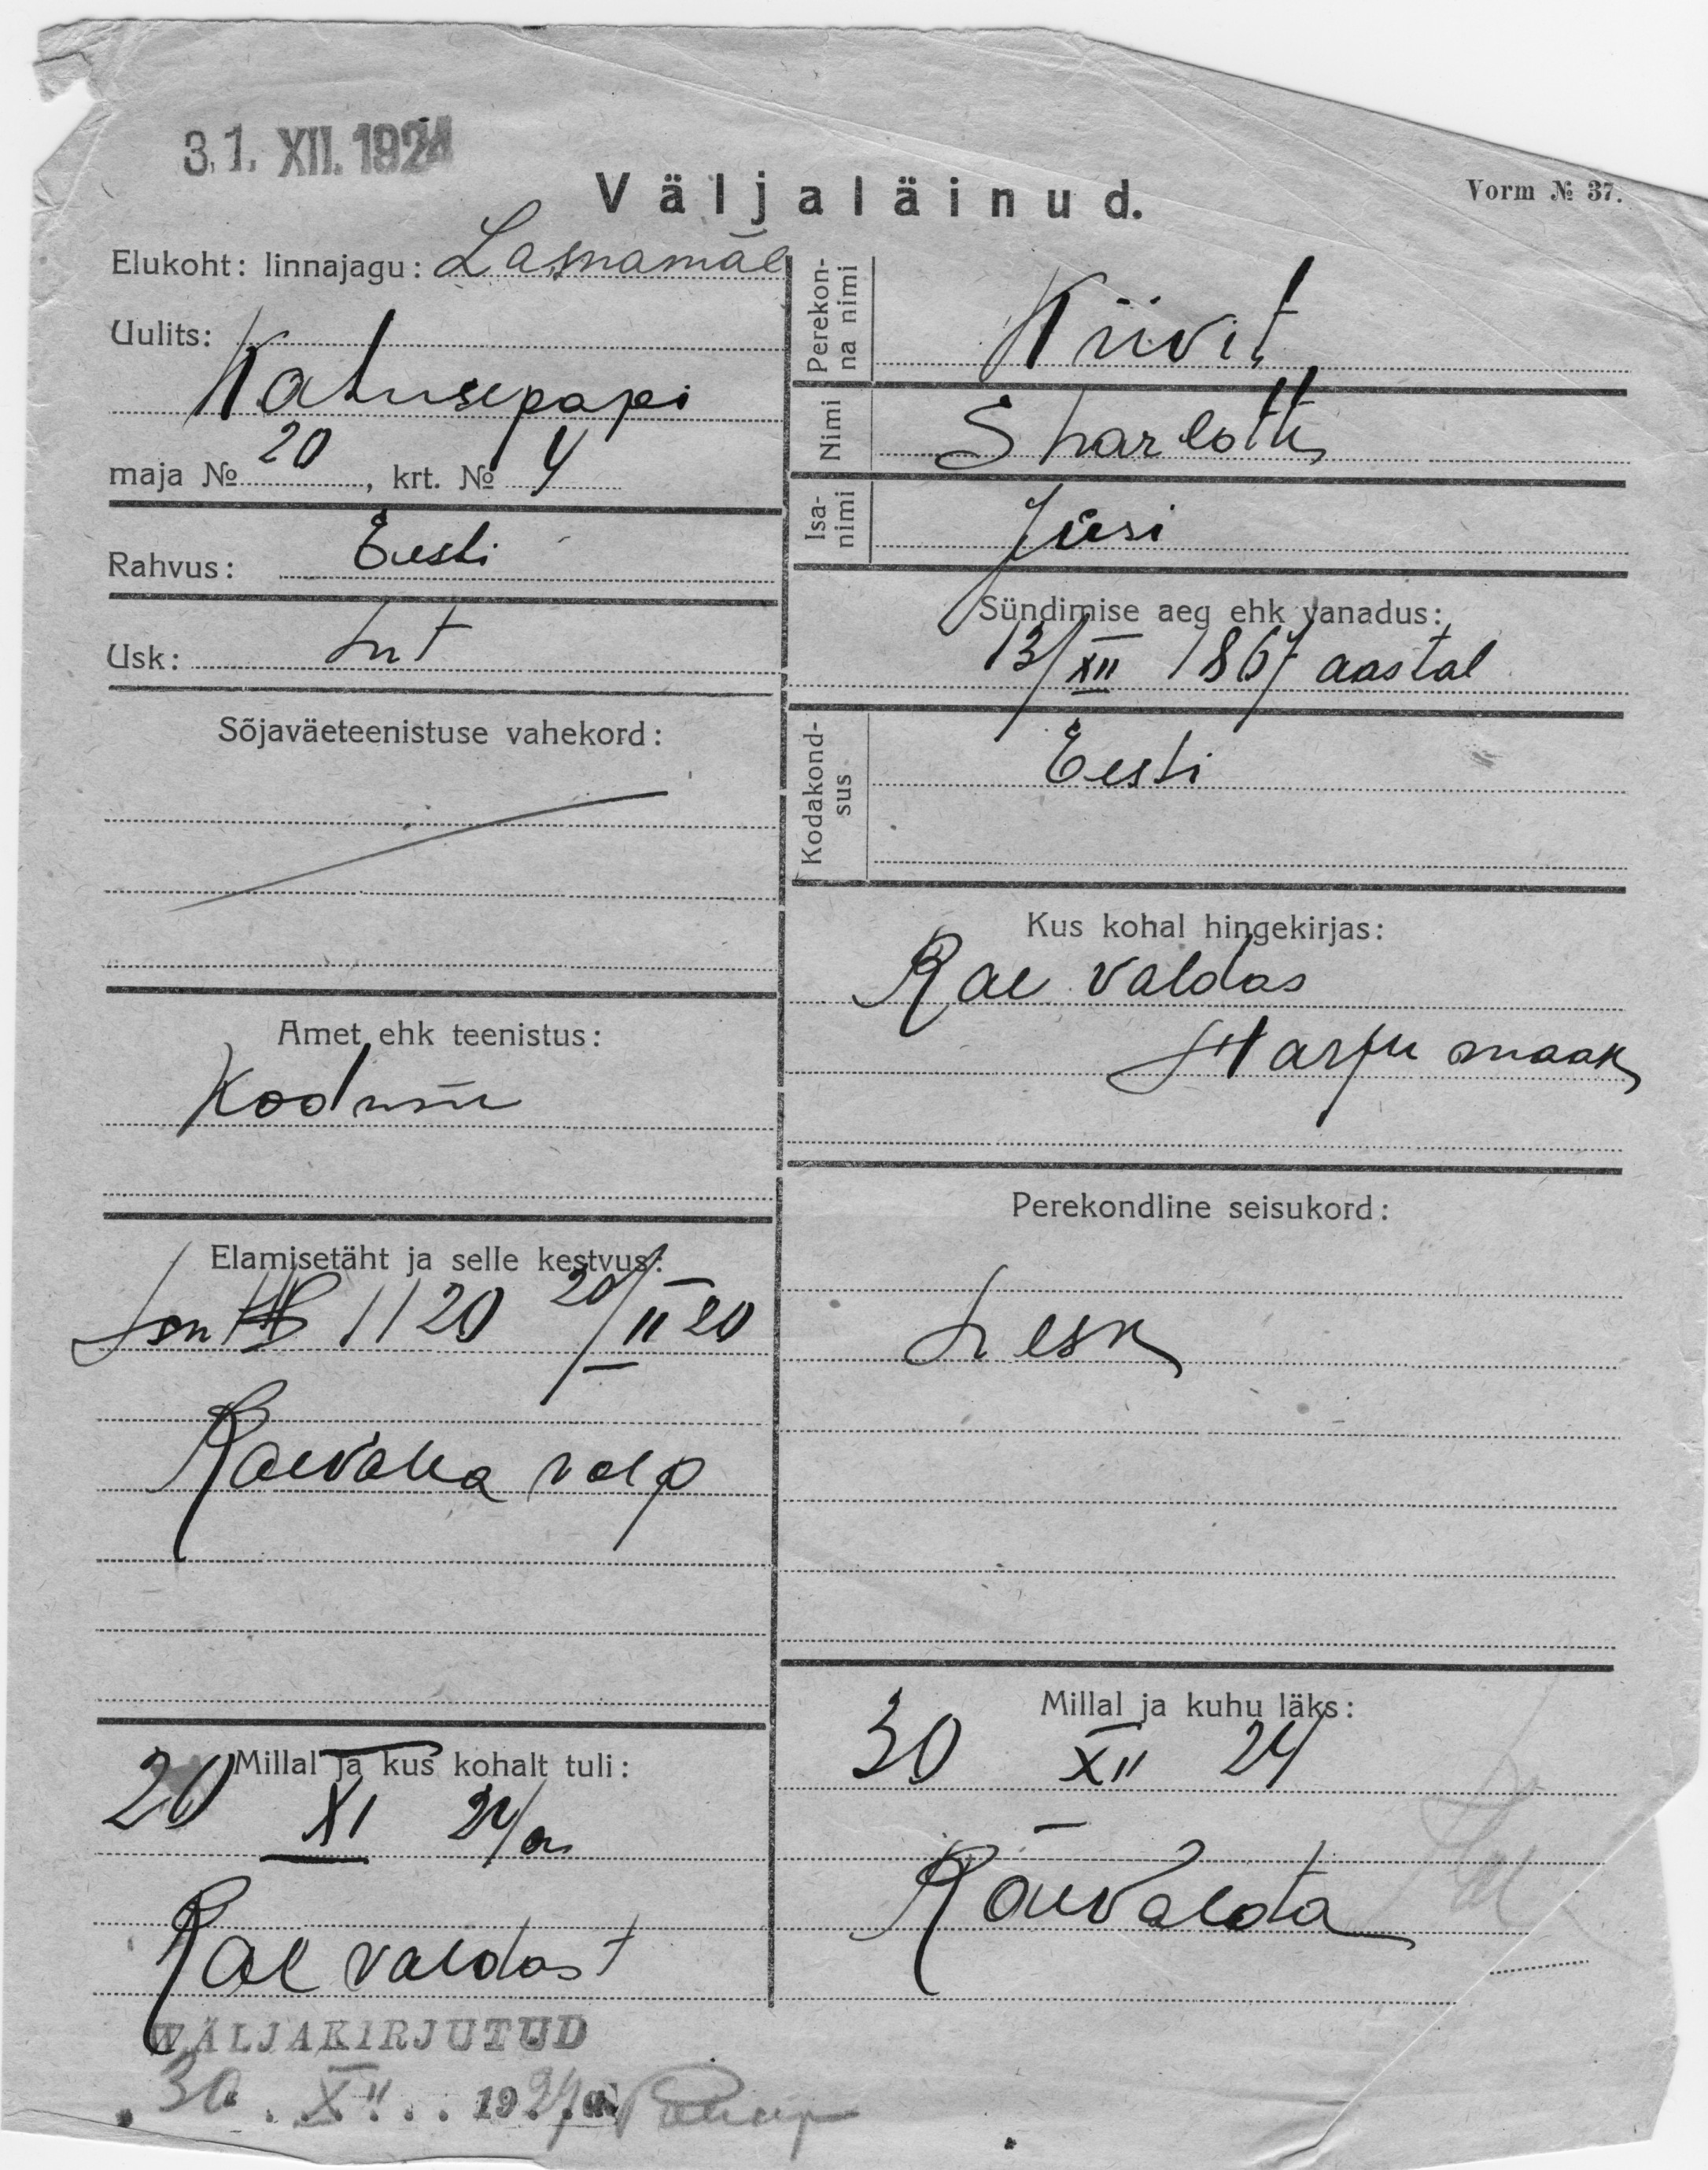 31. XII. 1924
Väljaläinud.
Vorm № 37.
Elukoht: linnajagu: Lasnamäe
Uulits:
Katusepapi
maja № 20, krt. № 4
Rahvus: Eesti
Usk: Lut
Sõjaväeteenistuse vahekord:
Amet ehk teenistus:
Kodune
Elamisetäht ja selle kestvus:
1120 20/II 20
Raevalla valp
Millal ja kus kohalt tuli:
20 XI 24/a
Rae valdast
Perekonna nimi
Kiivit
Nimi
Sharlotte
Isanimi
Jüri
Sündimise aeg ehk vanadus:
13/XII 1867 aastal
Kodakondsus
Eesti
Kus kohal hingekirjas:
Rae valdas
Harju maak
Perekondline seisukord:
Lesk
Millal ja kuhu läks:
30 XII 24
Raevalda
WÄLJAKIRJUTUD
30. XII. 1924 a